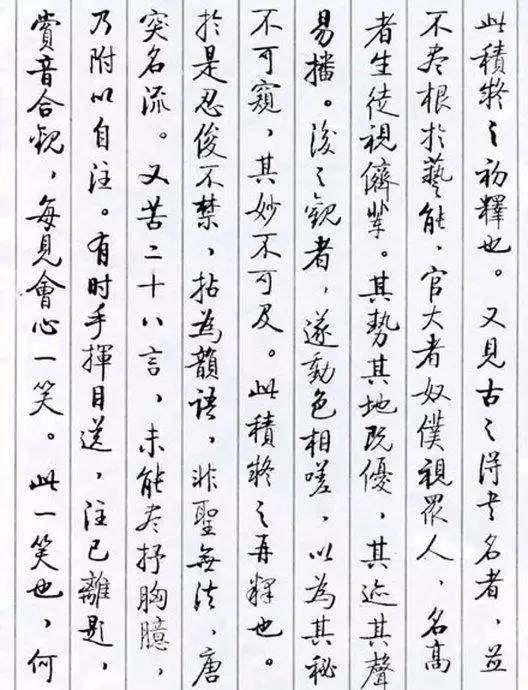 此積疑之初釋也。又見古之得书名者，並
不尽根於藝能，官大者奴僕視眾人，名高
者生徒視儕輩。其勢其地既優，其迹其聲
易播。後之觀者，遂動色相嗟，以為其秘
不可窺，其妙不可及。此積疑之再釋也。
於是忍俊不禁，拈為韻語，非聖無法，唐
突名流。又苦二十八言，未能尽抒胸臆，
乃附以自注。有时手揮目送，注已離題，
賞音合觀，每見會心一笑。此一笑也，何